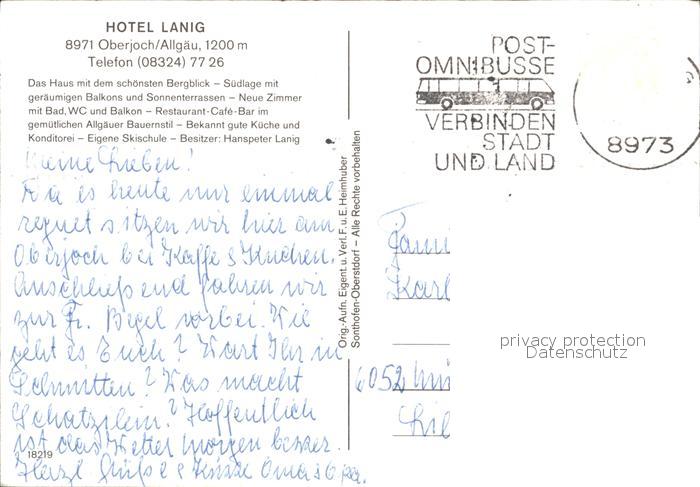 HOTEL LANIG
8971 Oberjoch/Allgäu, 1200 m
Telefon (08324) 77 26
Das Haus mit dem schönsten Bergblick – Südlage mit
geräumigen Balkons und Sonnenterrassen – Neue Zimmer
mit Bad, WC und Balkon – Restaurant-Café-Bar im
gemütlichen Allgäuer Bauernstil – Bekannt gute Küche und
Konditorei – Eigene Skischule – Besitzer: Hanspeter Lanig
Meine Lieben!
Da es heute nur einmal
regnet sitzen wir hier am
Oberjoch bei Kaffe & Kuchen.
Anschließend fahren wir
zur Fr. vorbei. Wie
geht es Euch? Wart Ihr in
Schmitten? Was macht
Schatzilein? Hoffentlich
ist das Wetter morgen besser.
Herzl Grüße & Küsse Oma & Opa.
18219
Orig.-Aufn. Eigent. u. Verl. F. u. E. Heimhuber
Sonthofen-Oberstdorf – Alle Rechte vorbehalten
POST-
OMNIBUSSE
VERBINDEN
STADT
UND LAND
8973
Fami
Karl
6052
privacy protection
Datenschutz